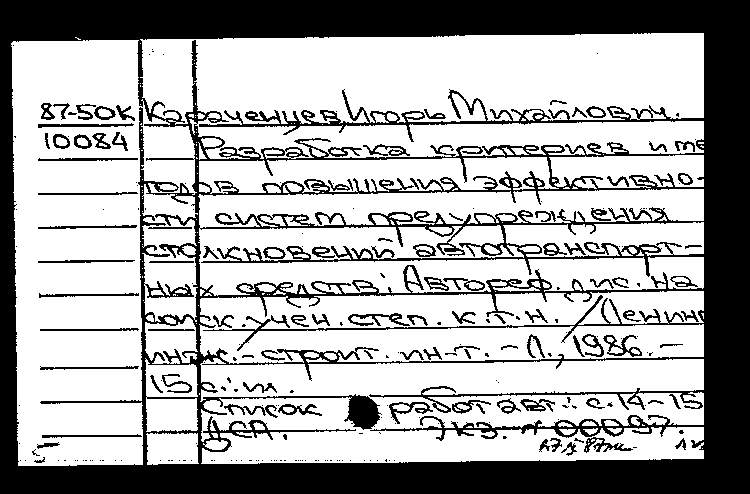 87-50К Караченцев, Игорь Михайлович.
10084 Разработка критериев и ме
тодов повышения эффективно-
сти систем предупреждения
столкновений автотранспорт-
ных средств: Автореф. дис. на
соиск. учен. степ. к.т.н. / Ленинг
инж.-строит. ин-т. - Л., 1986. -
15 с.: ил.
Список работ авт.: с. 14-15
ДСП. Экз. № 00097.
5